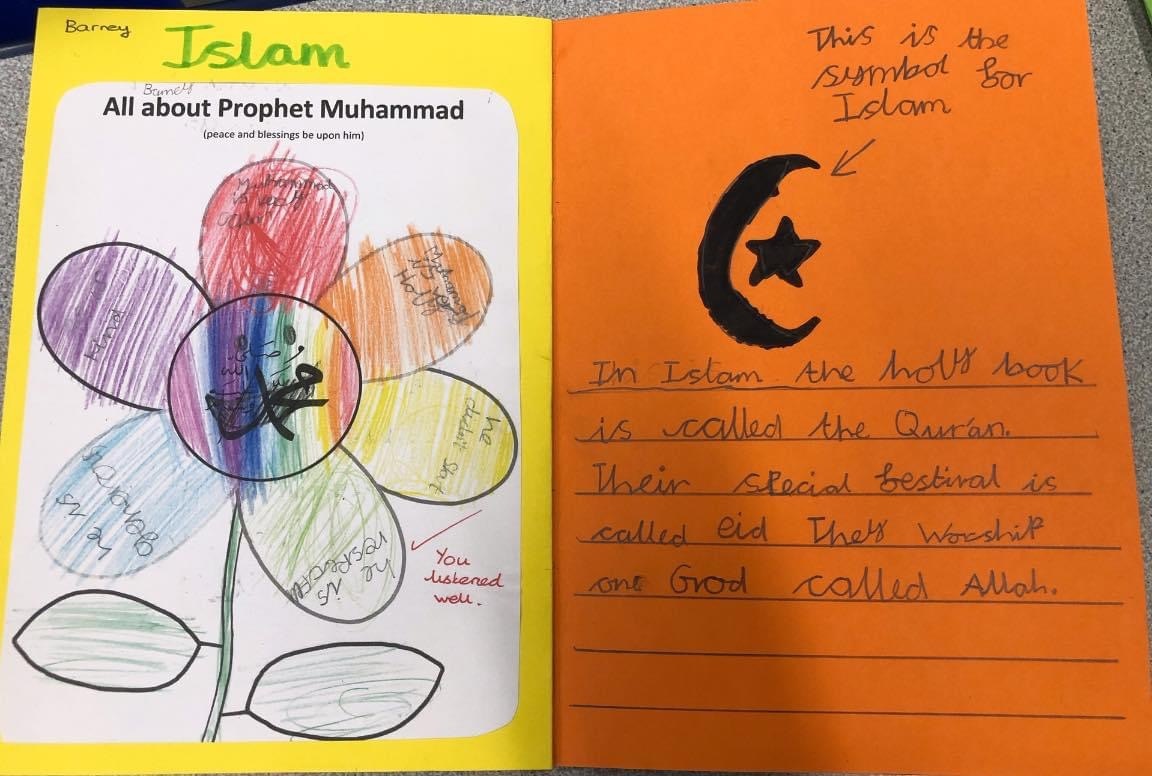 Barney
Islam
Barney
All about Prophet Muhammad
(peace and blessings be upon him)
Muhammad
is
Muhammad
is
he
didn't
he
is
he is
kind
محمد
You
listened
well.
This is the
symbol for
Islam
In Islam the holy book
is called the Qur'an.
Their special festival is
called eid They worship
one God called Allah.